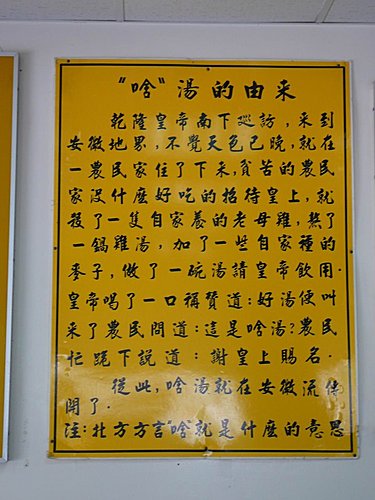 "啥"湯的由来
乾隆皇帝南下巡訪，来到
安徽地界，不覺天色已晚，就在
一農民家住了下来，貧苦的農民
家没什麽好吃的招待皇上，就
殺了一隻自家養的老母雞，熬了
一鍋雞湯，加了一些自家種的
麥子，做了一碗湯請皇帝飲用。
皇帝喝了一口稱贊道：好湯便叫
来了農民問道：這是啥湯？農民
忙跪下説道：謝皇上賜名。
從此，啥湯就在安徽流传
開了。
注：北方方言"啥"就是什麽的意思